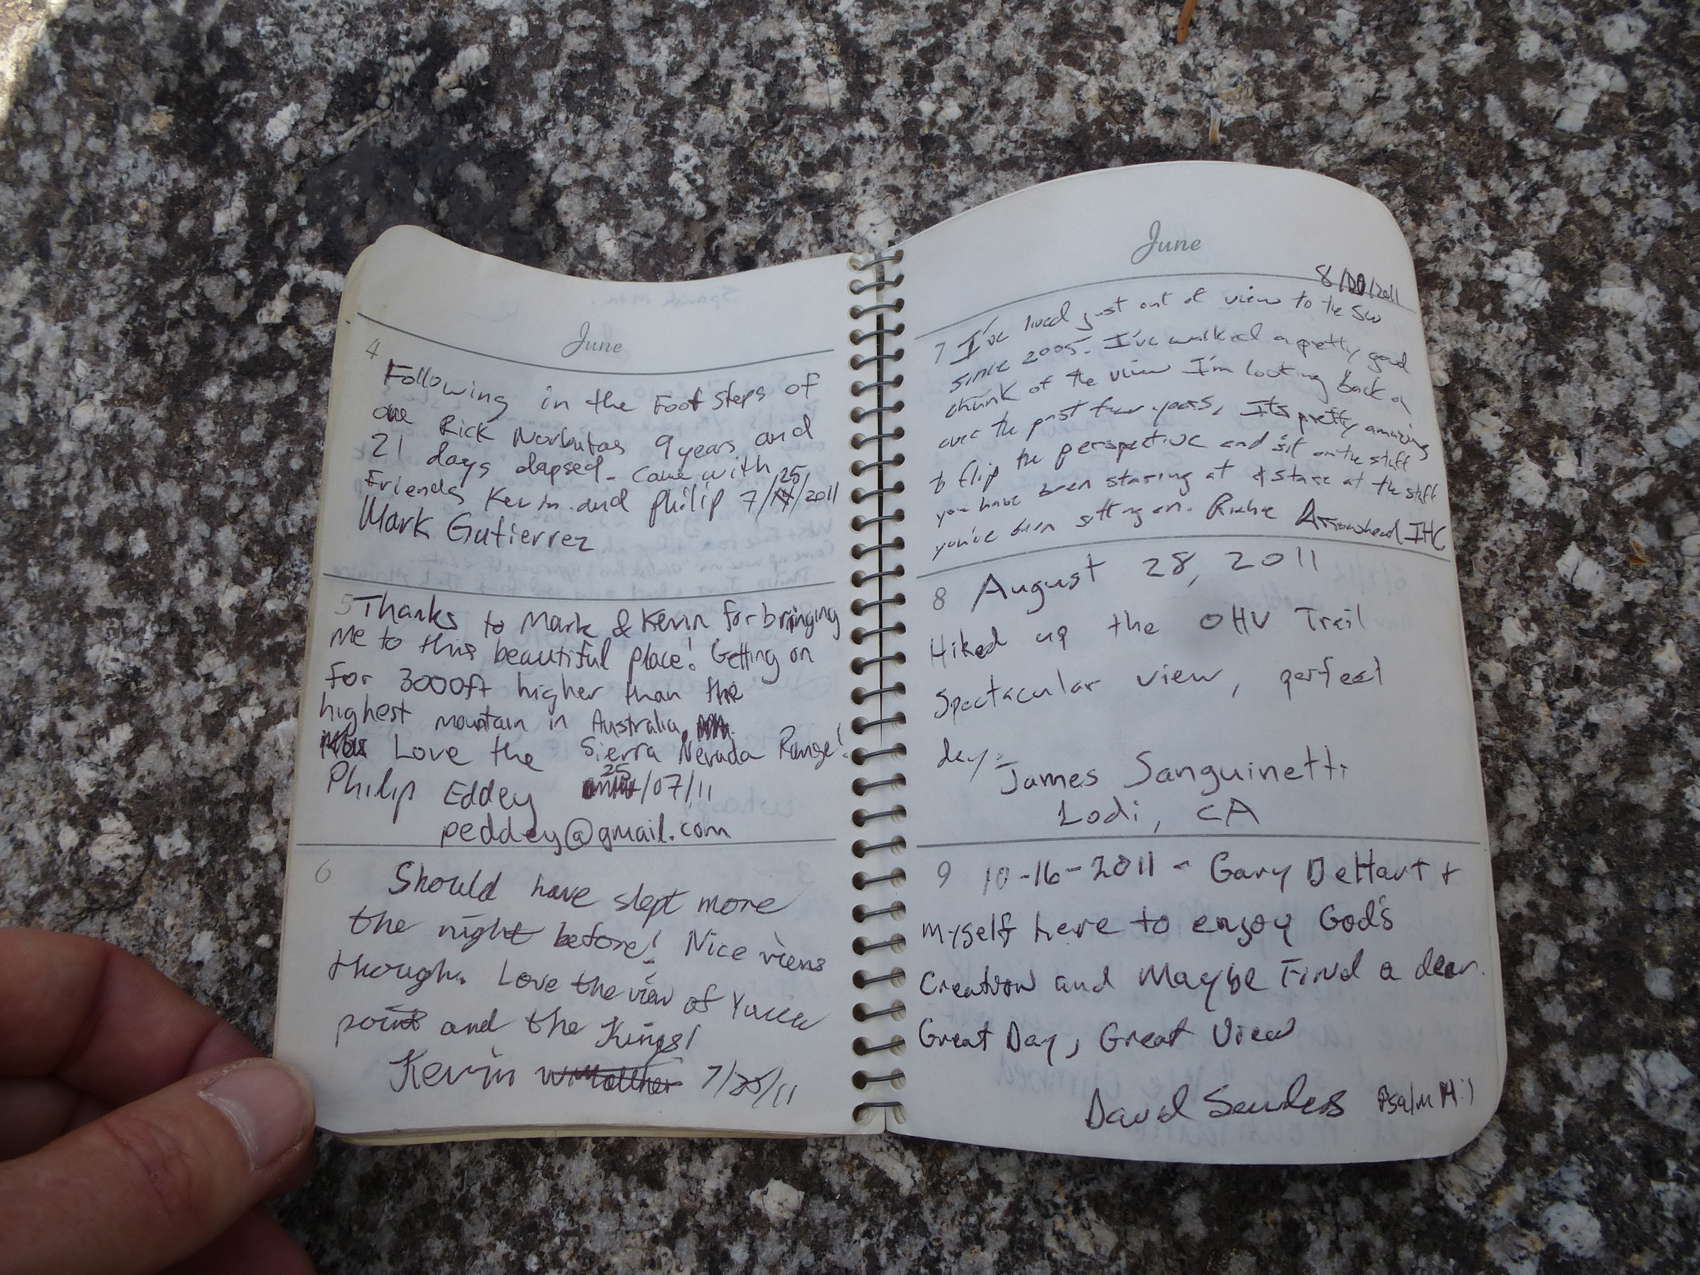 June
4
Following in the Footsteps of
one Rick Norbutas 9 years and
21 days elapsed. Came with
Friends Kevin and Philip 7/25/2011
Mark Gutierrez
5 Thanks to Mark & Kevin for bringing
me to this beautiful place! Getting on
for 3000ft higher than the
highest mountain in Australia.
Love the Sierra Nevada Range!
Philip Eddey 25/07/11
peddey@gmail.com
6
Should have slept more
the night before! Nice views
though. Love the view of Yucca
point and the Kings!
Kevin 7/25/11
June
8/20/2011
7 I've lived just out of view to the SW
since 2005. I've walked a pretty good
chunk of the view I'm looking back on
over the past few years. Its pretty amazing
to flip the perspective and sit on the stuff
you have been staring at & stare at the stuff
you've been sitting on. Richie Arrowhead IHC
8 August 28, 2011
Hiked up the OHV Trail
Spectacular view, perfect
day.
James Sanguinetti
Lodi, CA
9 10-16-2011 - Gary DeHart +
myself here to enjoy God's
Creation and Maybe Find a deer.
Great Day, Great View
David Sanders Psalm